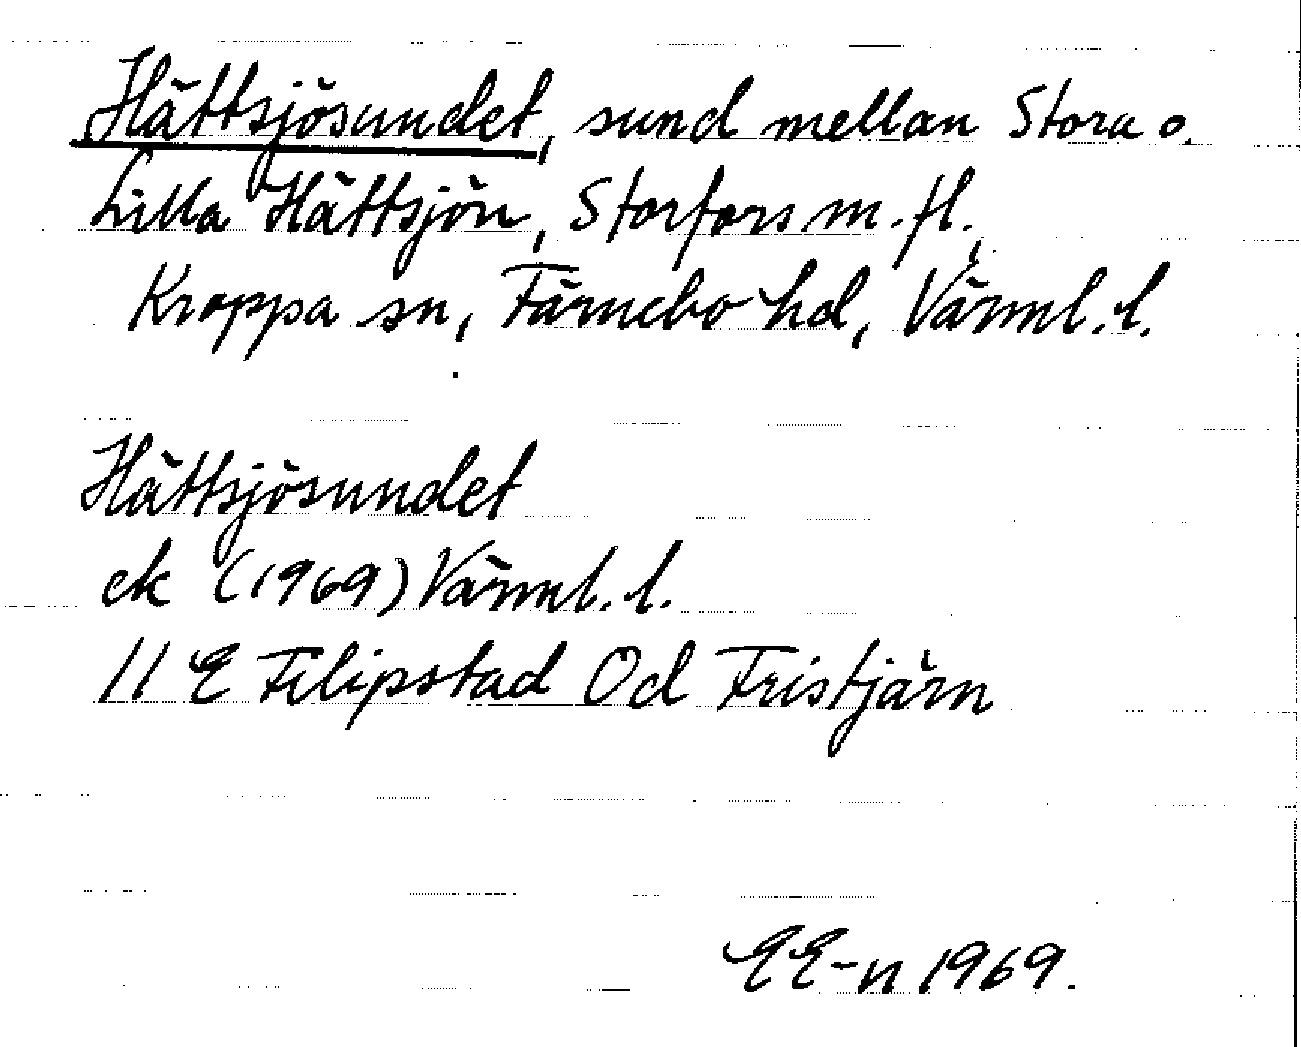 Hättsjösundet, sund mellan Stora o.
Lilla Hättsjön, Storfors m.fl.,
Kroppa sn, Färnebo hd, Värml.l.
Hättsjösundet
ek (1969) Värml.l.
11 E Filipstad 0d Fristjärn
EE-n 1969.